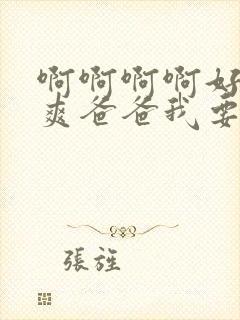 啊啊啊啊好
爽爸爸我要
張旌